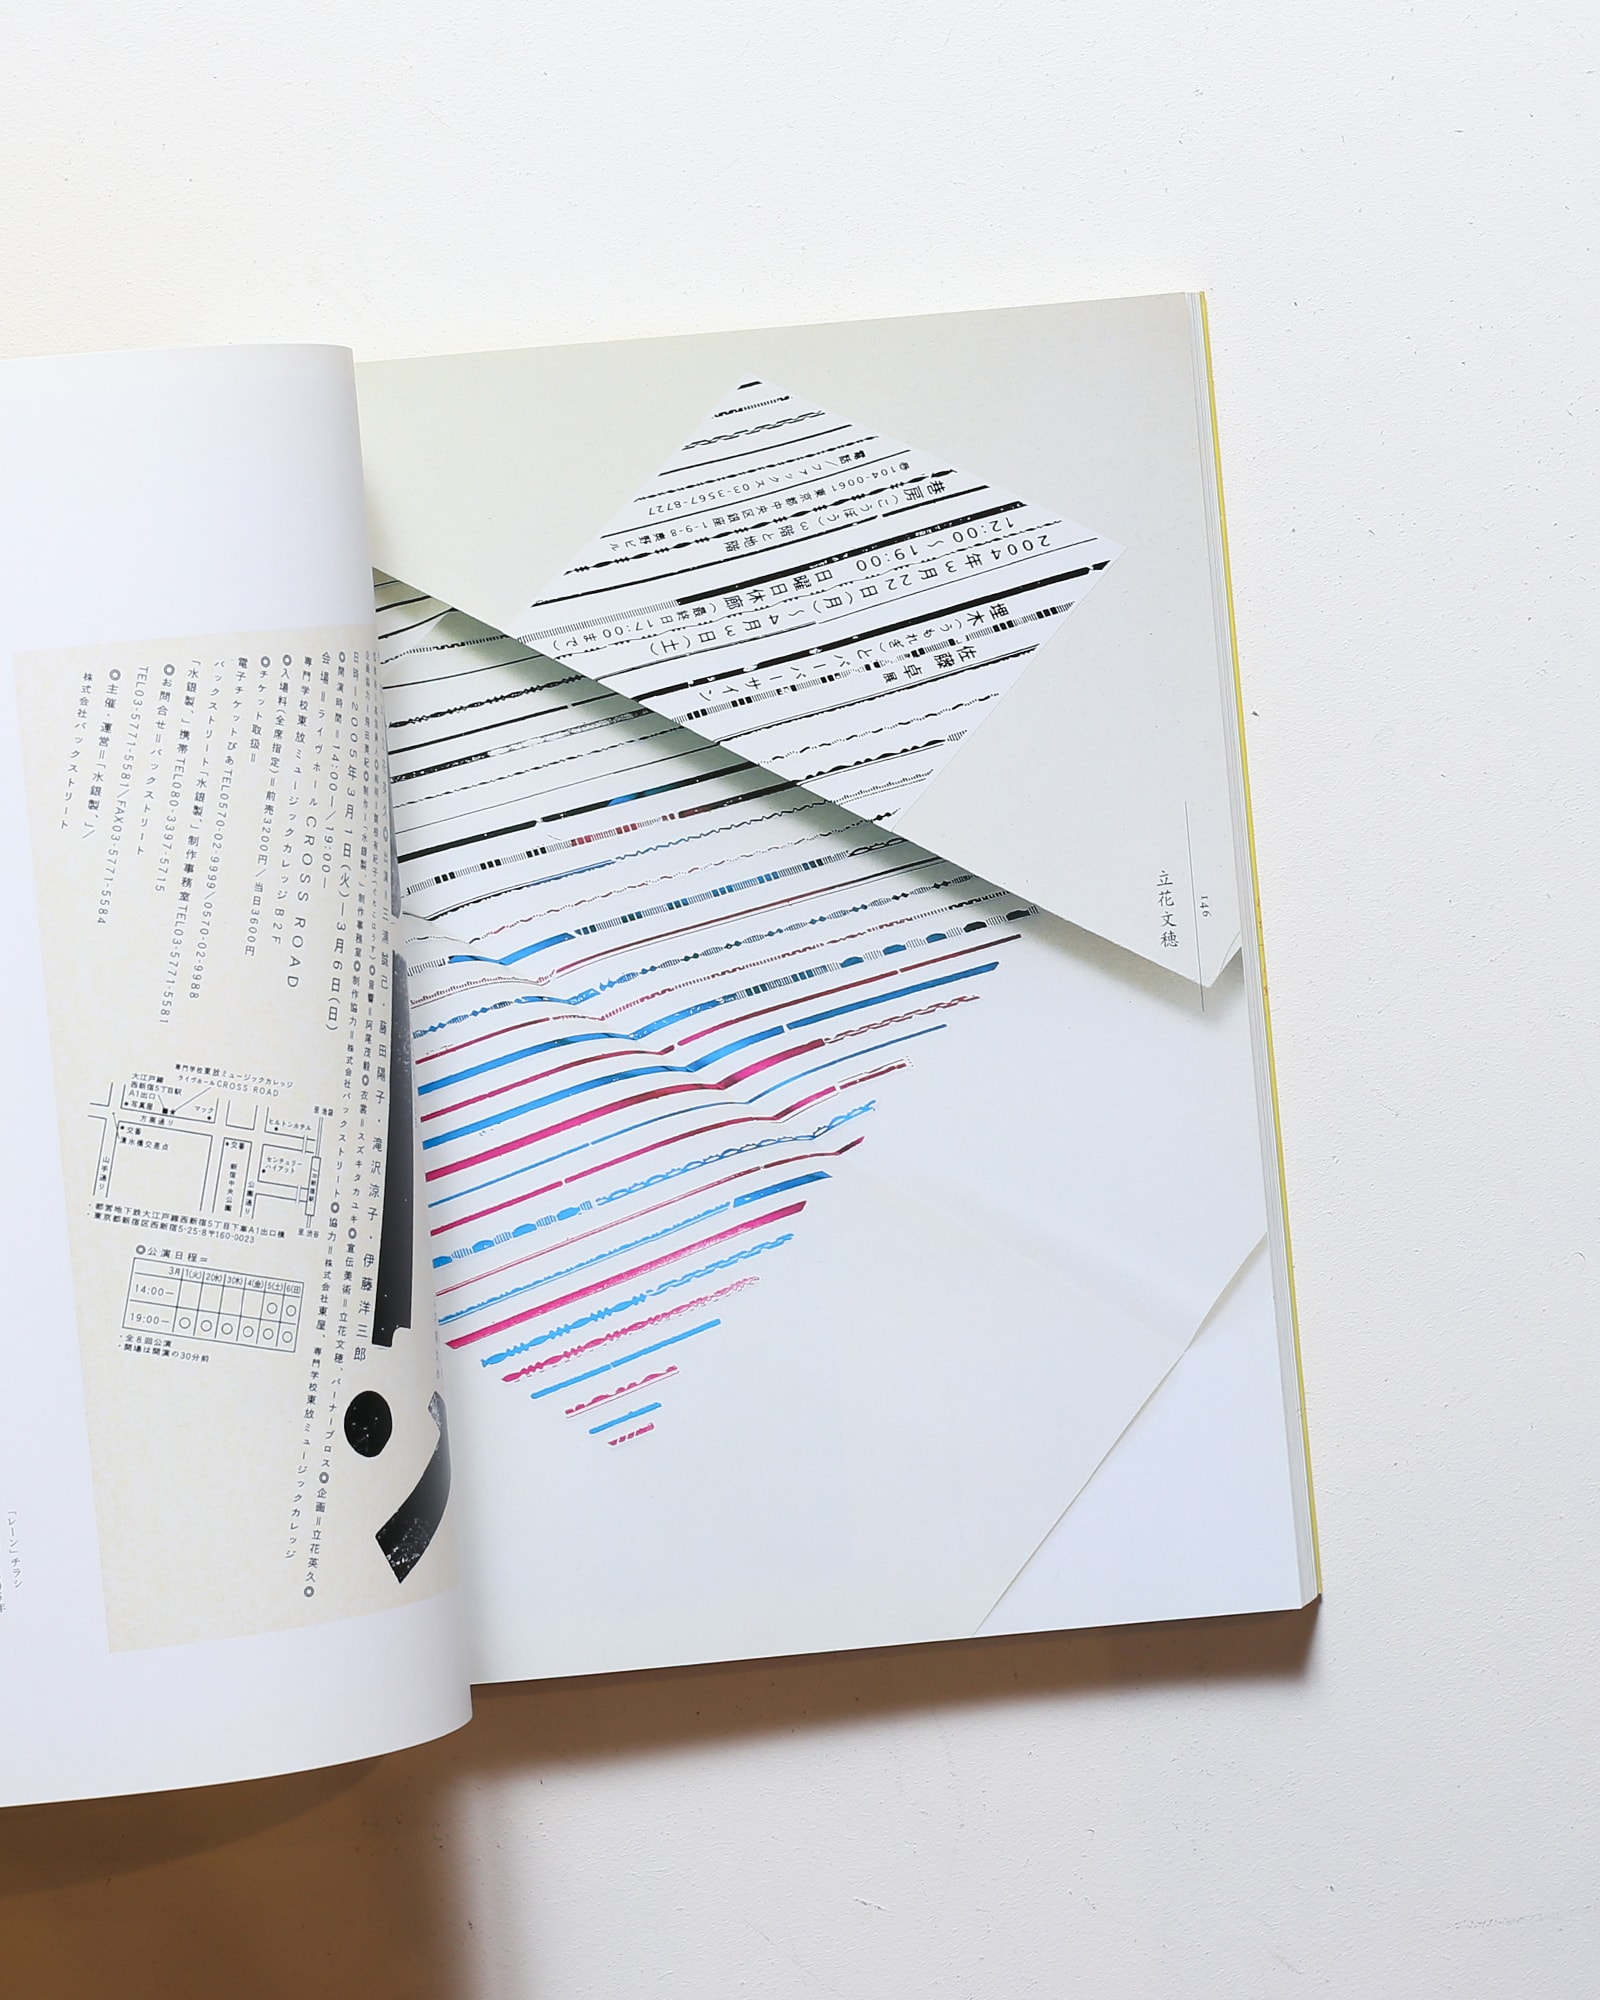 三浦誠己・藤田陽子・滝沢涼子・伊藤洋三郎
日時=2005年3月1日(火)―3月6日(日)
◎開演時間=14:00―/19:00―
会場=ライヴホールCROSS ROAD
専門学校東放ミュージックカレッジB2F
◎入場料(全席指定)=前売3200円/当日3600円
◎チケット取扱=
電子チケットぴあTEL0570-02-9999/0570-02-9988
バックストリート「水銀製、」制作事務室TEL03-5771-5581
「水銀製、」携帯TEL080-3397-5715
◎お問合せ=バックストリート
TEL03-5771-5581/FAX03-5771-5584
◎主催・運営=「水銀製、」/
株式会社バックストリート
制作=「水銀製、」制作事務室◎制作協力=株式会社バックストリート◎協力=株式会社東屋、専門学校東放ミュージックカレッジ
◎音響=阿尾茂毅◎衣裳=スズキタカユキ◎宣伝美術=立花文穂、バーナーブロス◎企画=立花英久◎
専門学校東放ミュージックカレッジ
ライヴホールCROSS ROAD
大江戸線
西新宿5丁目駅
A1出口
写真屋
マック
方南通り
交番
清水橋交差点
山手通り
交番
新宿中央公園
公園通り
ヒルトンホテル
センチュリー
ハイアット
至池袋
JR新宿駅
至渋谷
・都営地下鉄大江戸線西新宿5丁目下車A1出口様
・東京都新宿区西新宿5-25-8〒160-0023
◎公演日程=
3月 1(火) 2(水) 3(木) 4(金) 5(土) 6(日)
14:00― ○ ○
19:00― ○ ○ ○ ○ ○ ○
・全8回公演
・開場は開演の30分前
「レーン」チラシ
佐藤卓展
埋木(うもれぎ)とバーバーサイン
2004年3月22日(月)〜4月3日(土)
12:00〜19:00 日曜日休廊(最終日17:00まで)
巷房(こうぼう)3階と地階
〒104-0061 東京都中央区銀座1-9-8 奥野ビル
電話/ファックス 03-3567-8727
146
立花文穂